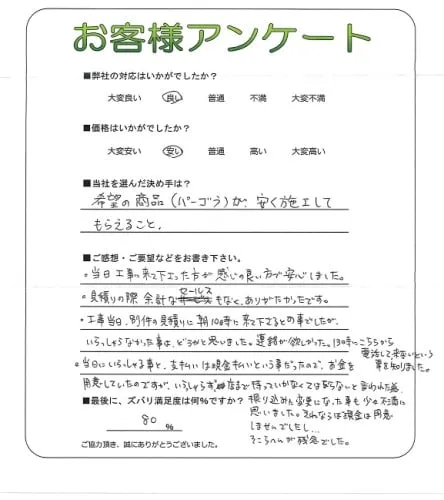 お客様アンケート
■弊社の対応はいかがでしたか?
大変良い 良い 普通 不満 大変不満
■価格はいかがでしたか?
大変安い 安い 普通 高い 大変高い
■当社を選んだ決め手は?
希望の商品(パーゴラ)が、安く施工して
もらえること。
■ご感想・ご要望などをお書き下さい。
・当日工事に来て下さった方が感じの良い方で安心しました。
・見積りの際 余計なセールスもなく、ありがたかったです。
・工事当日、別件の見積りに朝10時に来て下さるとの事でしたが、
いらっしゃらなかった事は、どうかと思いました。連絡が欲しかった。13時にこちらから
電話して来ないという
事を知りました。
・当日にいらっしゃる事と、支払いは現金払いという事だったので、お金を
用意していたのですが、いらっしゃらず 店まで持っていかなくてはならないと言われた為、
振り込みに変更になった事も少々不満に
思いました。それならば現金は用意
しませんでしたし…
そこらへんが残念でした。
■最後に、ズバリ満足度は何%ですか?
80 %
ご協力頂き、誠にありがとうございました。